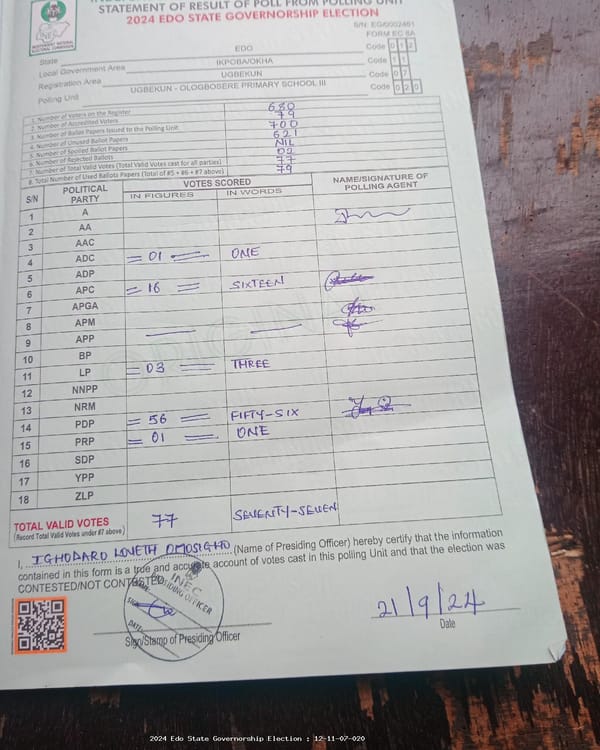 STATEMENT OF RESULT OF POLL FROM POLLING UNIT
2024 EDO STATE GOVERNORSHIP ELECTION
INEC
INDEPENDENT NATIONAL ELECTORAL COMMISSION
FORM EC 8A
State EDO Code 0 1 2
Local Government Area IKPOBA/OKHA Code 1 1
Registration Area UGBEKUN Code 0 7
Polling Unit UGBEKUN - OLOGBOSERE PRIMARY SCHOOL III Code 0 2 0
1. Number of Voters on the Register 680
2. Number of Accredited Voters 79
3. Number of Ballot Papers Issued to the Polling Unit 700
4. Number of Unused Ballot Papers 621
5. Number of Spoiled Ballot Papers NIL
6. Number of Rejected Ballots 02
7. Number of Total Valid Votes (Total Valid Votes cast for all parties) 77
8. Total Number of Used Ballots Papers (Total of #5 + #6 + #7 above) 79
S/N POLITICAL PARTY VOTES SCORED NAME/SIGNATURE OF POLLING AGENT
IN FIGURES IN WORDS
1 A
2 AA
3 AAC
4 ADC = 01 = ONE
5 ADP
6 APC = 16 = SIXTEEN
7 APGA
8 APM
9 APP
10 BP
11 LP = 03 = THREE
12 NNPP
13 NRM
14 PDP = 56 = FIFTY-SIX
15 PRP = 01 = ONE
16 SDP
17 YPP
18 ZLP
TOTAL VALID VOTES 77 SEVENTY-SEVEN
(Record Total Valid Votes under #7 above)
I, IGHODARO LOVETH OMOSIGHO (Name of Presiding Officer) hereby certify that the information
contained in this form is a true and accurate account of votes cast in this polling Unit and that the election was
CONTESTED/NOT CONTESTED
INEC
PRESIDING OFFICER
SIGN
DATE
21/9/24
Sign/Stamp of Presiding Officer
Date
2024 Edo State Governorship Election : 12-11-07-020